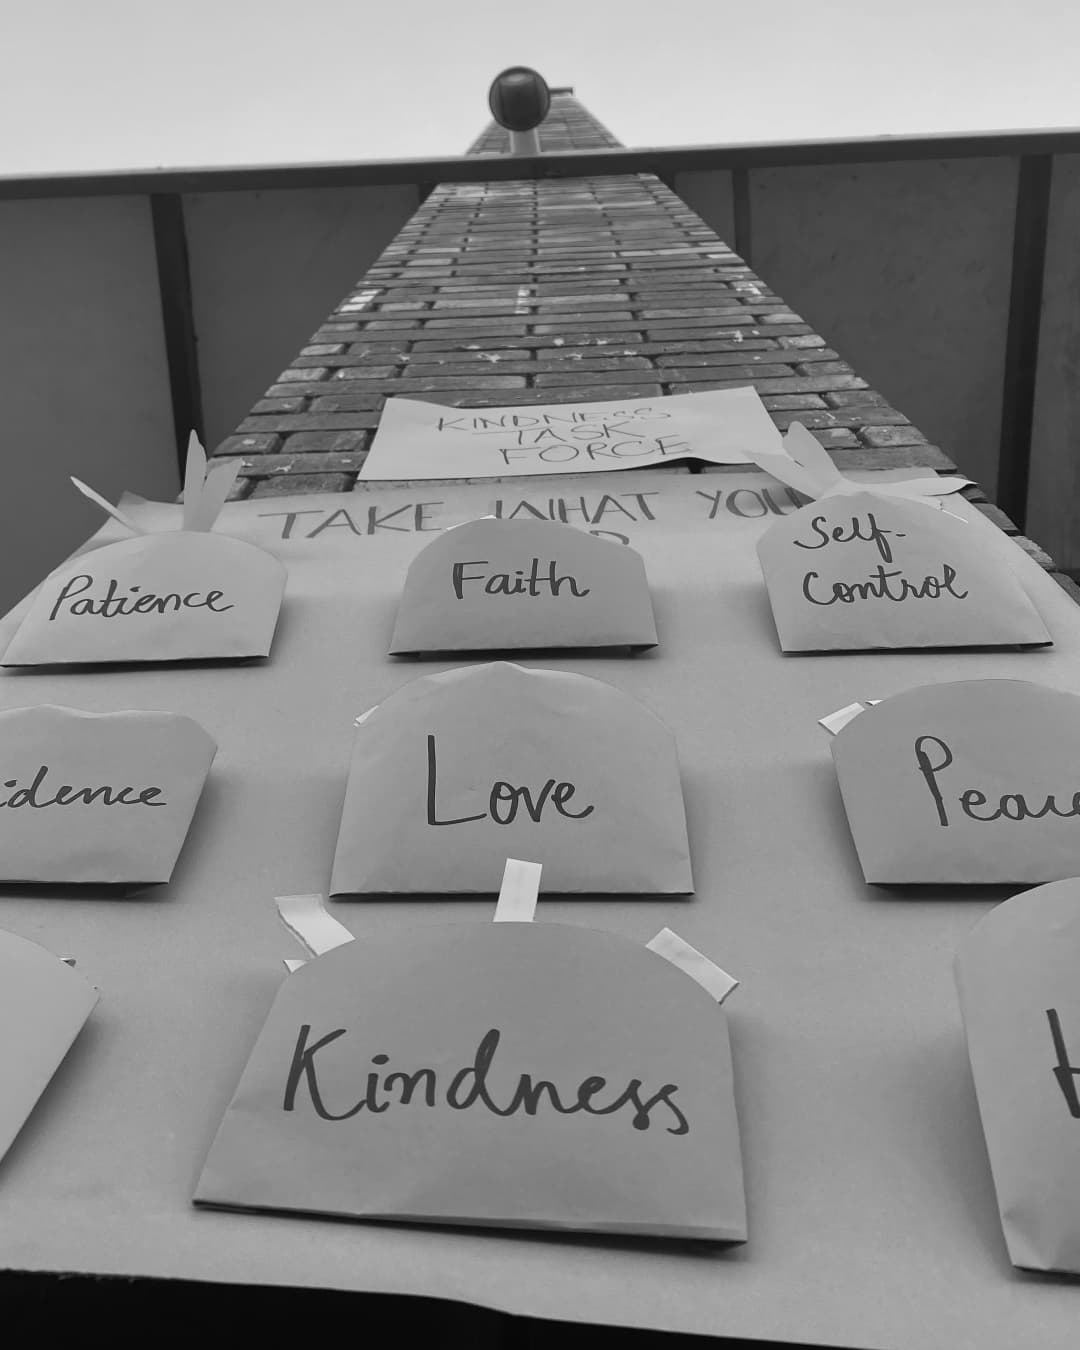 KINDNESS
TASK
FORCE
TAKE WHAT YOU
Patience
Faith
Self-
Control
idence
Love
Peace
Kindness